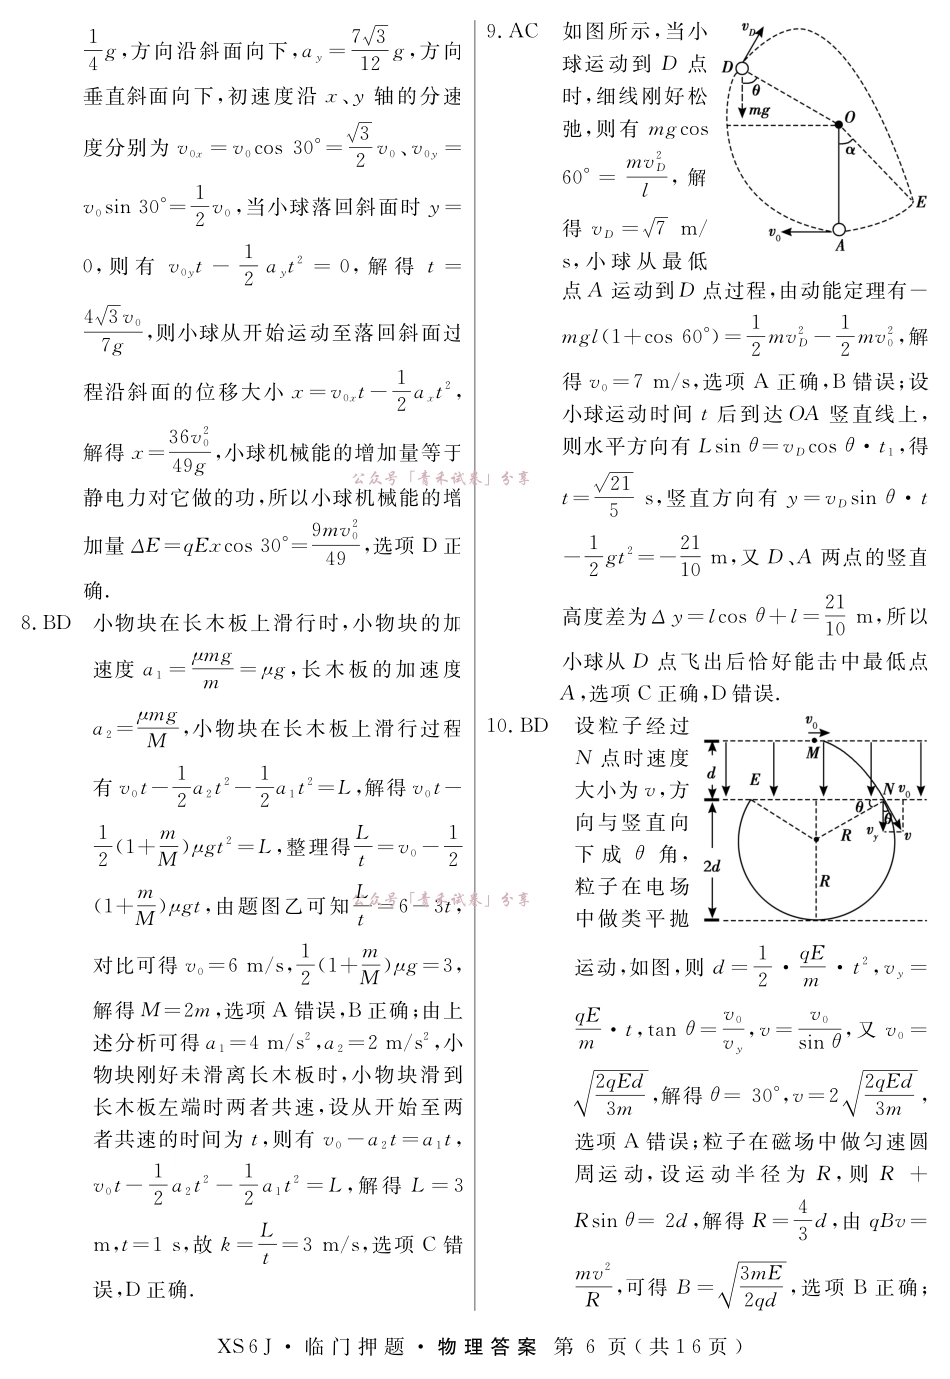 1/4 g,方向沿斜面向下,a_y=7√3/12 g,方向
垂直斜面向下,初速度沿 x、y 轴的分速
度分别为 v_{0x}=v_0cos 30°=√3/2 v_0、v_{0y}=
v_0sin 30°=1/2 v_0,当小球落回斜面时 y=
0,则有 v_{0y}t-1/2 a_yt²=0,解得 t=
4√3v_0/7g,则小球从开始运动至落回斜面过
程沿斜面的位移大小 x=v_{0x}t-1/2 a_xt²,
解得 x=36v_0²/49g,小球机械能的增加量等于
静电力对它做的功,所以小球机械能的增
加量 ΔE=qExcos 30°=9mv_0²/49,选项 D 正
确.
8. BD 小物块在长木板上滑行时,小物块的加
速度 a_1=μmg/m=μg,长木板的加速度
a_2=μmg/M,小物块在长木板上滑行过程
有 v_0t-1/2 a_2t²-1/2 a_1t²=L,解得 v_0t-
1/2(1+m/M)μgt²=L,整理得 L/t=v_0-1/2
(1+m/M)μgt,由题图乙可知 L/t=6-3t,
对比可得 v_0=6 m/s,1/2(1+m/M)μg=3,
解得 M=2m,选项 A 错误,B 正确;由上
述分析可得 a_1=4 m/s²,a_2=2 m/s²,小
物块刚好未滑离长木板时,小物块滑到
长木板左端时两者共速,设从开始至两
者共速的时间为 t,则有 v_0-a_2t=a_1t,
v_0t-1/2 a_2t²-1/2 a_1t²=L,解得 L=3
m,t=1 s,故 k=L/t=3 m/s,选项 C 错
误,D 正确.
9. AC 如图所示,当小
球运动到 D 点
时,细线刚好松
弛,则有 mgcos
60°=mv_D²/l,解
得 v_D=√7 m/
s,小球从最低
点 A 运动到 D 点过程,由动能定理有-
mgl(1+cos 60°)=1/2 mv_D²-1/2 mv_0²,解
得 v_0=7 m/s,选项 A 正确,B 错误;设
小球运动时间 t 后到达 OA 竖直线上,
则水平方向有 Lsin θ=v_Dcos θ·t_1,得
t=√21/5 s,竖直方向有 y=v_Dsin θ·t
-1/2 gt²=-21/10 m,又 D、A 两点的竖直
高度差为 Δy=lcos θ+l=21/10 m,所以
小球从 D 点飞出后恰好能击中最低点
A,选项 C 正确,D 错误.
v_D
D
θ
mg
O
α
E
v_0
A
10. BD 设粒子经过
N 点时速度
大小为 v,方
向与竖直向
下成 θ 角,
粒子在电场
中做类平抛
运动,如图,则 d=1/2·qE/m·t²,v_y=
qE/m·t,tan θ=v_0/v_y,v=v_0/sin θ,又 v_0=
√(2qEd/3m),解得 θ=30°,v=2√(2qEd/3m),
选项 A 错误;粒子在磁场中做匀速圆
周运动,设运动半径为 R,则 R+
Rsin θ=2d,解得 R=4/3 d,由 qBv=
mv²/R,可得 B=√(3mE/2qd),选项 B 正确;
v_0
M
d
E
N
v_0
θ
θ
R
v_y
v
2d
R
公众号「青禾试卷」分享
公众号「青禾试卷」分享
XS6J·临门押题·物理答案 第 6 页(共16页)